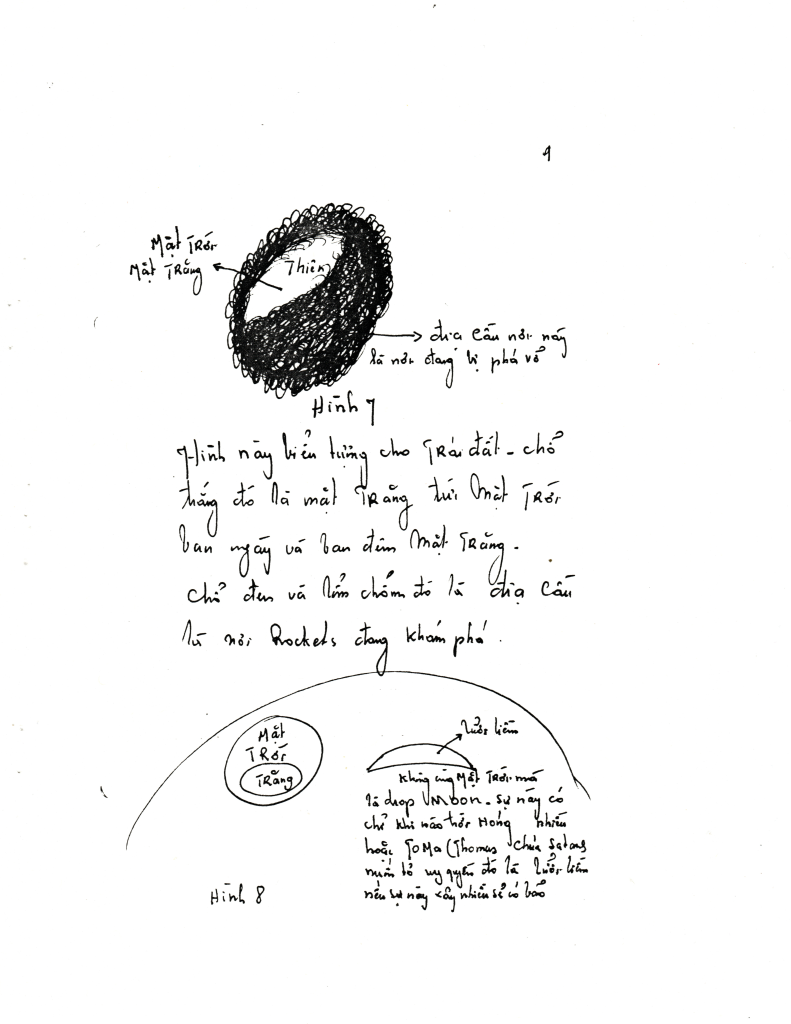 9
Mặt Trời
Mặt Trăng
Thiên
địa Cầu nơi nầy
là nơi đang bị phá vở
Hình 7
Hình nầy biểu tượng cho Trái đất - chổ
trắng đó là mặt Trăng tức Mặt Trời
ban ngày và ban đêm Mặt Trăng -
Chổ đen và lõm chõm đó là địa Cầu
là nơi Rockets đang Khám phá.
Mặt
Trời
Trăng
lưởi liềm
Không cùng Mặt Trời mà
là drop Moon - Sự nầy có
chỉ khi nào trời Hồng nhiều
hoặc ToMa (Thomas Chúa Satans
muốn tỏ uy quyền đó là lưởi liềm
nếu sự nầy xảy nhiều sẽ có bảo
Hình 8